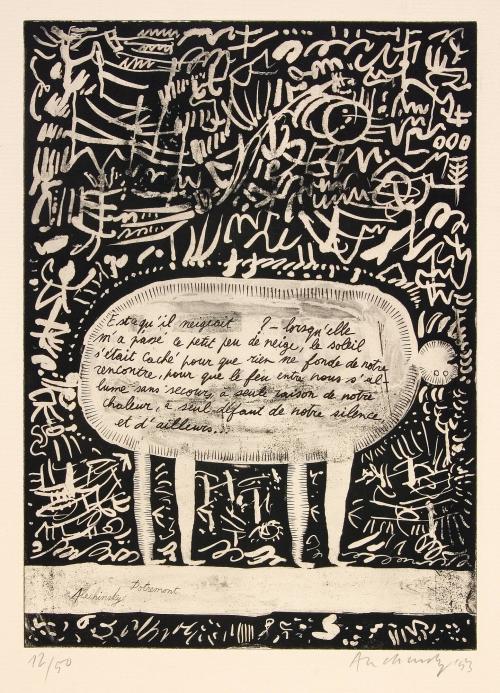 Est-ce qu'il neigeait ? – lorsqu'elle
m'a passé ce petit feu de neige, le soleil
s'était caché pour que rien ne fonde de notre
rencontre, pour que le feu entre nous s'al-
lume sans secours, à seule raison de notre
chaleur, à seul défaut de notre silence
et d'ailleurs...
Dotremont
Alechinsky
12/50
Alechinsky '53